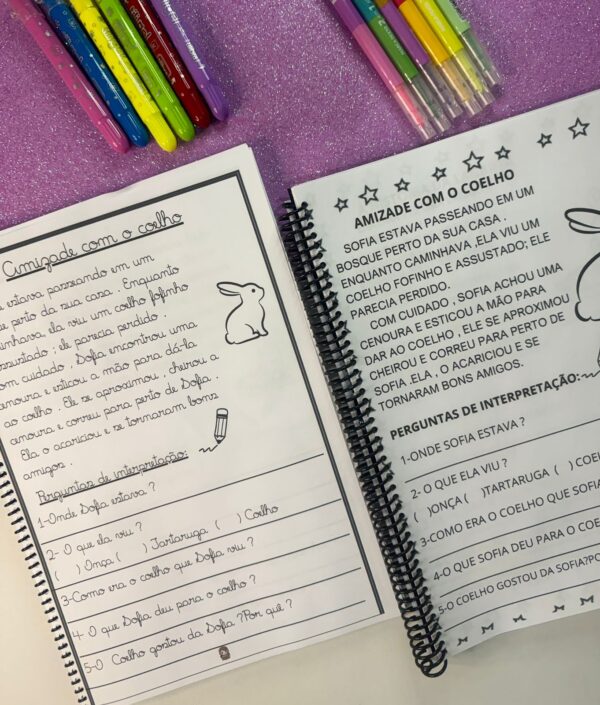 Amizade com o coelho
estava passeando em um
perto da sua casa . Enquanto
ela viu um coelho fofinho
; ele parecia perdido .
cuidado , Sofia encontrou uma
e esticou a mão para dá-la
ao coelho . Ele se aproximou , cheirou a
cenoura e correu para perto de Sofia .
Ela o acariciou e se tornaram bons
amigos .
Perguntas de interpretação:
1-Onde Sofia estava ?
2- O que ela viu ?
( ) Onça ( ) Tartaruga ( ) Coelho
3-Como era o coelho que Sofia viu ?
4- O que Sofia deu para o coelho ?
5-O Coelho gostou da Sofia ?Por quê ?
AMIZADE COM O COELHO
SOFIA ESTAVA PASSEANDO EM UM
BOSQUE PERTO DA SUA CASA .
ENQUANTO CAMINHAVA ,ELA VIU UM
COELHO FOFINHO E ASSUSTADO; ELE
PARECIA PERDIDO.
COM CUIDADO , SOFIA ACHOU UMA
CENOURA E ESTICOU A MÃO PARA
DAR AO COELHO , ELE SE APROXIMOU
CHEIROU E CORREU PARA PERTO DE
SOFIA .ELA , O ACARICIOU E SE
TORNARAM BONS AMIGOS.
PERGUNTAS DE INTERPRETAÇÃO:
1-ONDE SOFIA ESTAVA ?
2- O QUE ELA VIU ?
( )ONÇA ( )TARTARUGA ( )
3-COMO ERA O COELHO QUE SOFIA
4-O QUE SOFIA DEU PARA O
5-O COELHO GOSTOU DA SOFIA?